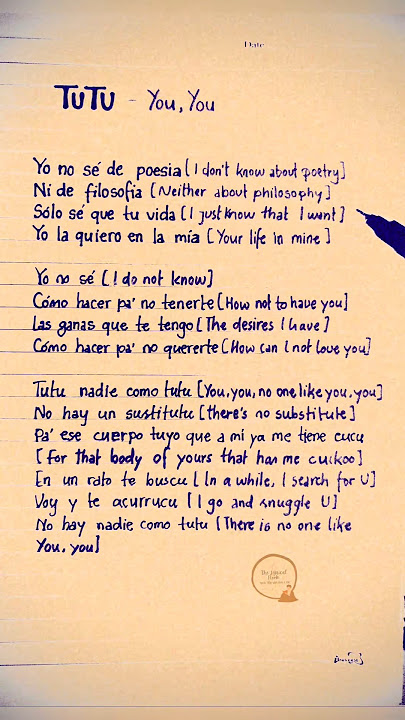 Date
TUTU - You, You
Yo no sé de poesia [I don't know about poetry]
Ni de filosofia [Neither about philosophy]
Sólo sé que tu vida [I just know that I want]
Yo la quiero en la mía [Your life in mine]
Yo no sé [I do not know]
Cómo hacer pa' no tenerte [How not to have you]
Las ganas que te tengo [The desires I have]
Cómo hacer pa' no quererte [How can I not love you]
Tutu nadie como tutu [You, you, no one like you, you]
No hay un sustitutu [there's no substitute]
Pa' ese cuerpo tuyo que a mi ya me tiene cucu
[for that body of yours that has me cuckoo]
En un rato te buscu [In a while, I search for U]
Voy y te acurrucu [I go and snuggle U]
No hay nadie como tutu [There is no one like
You, you]